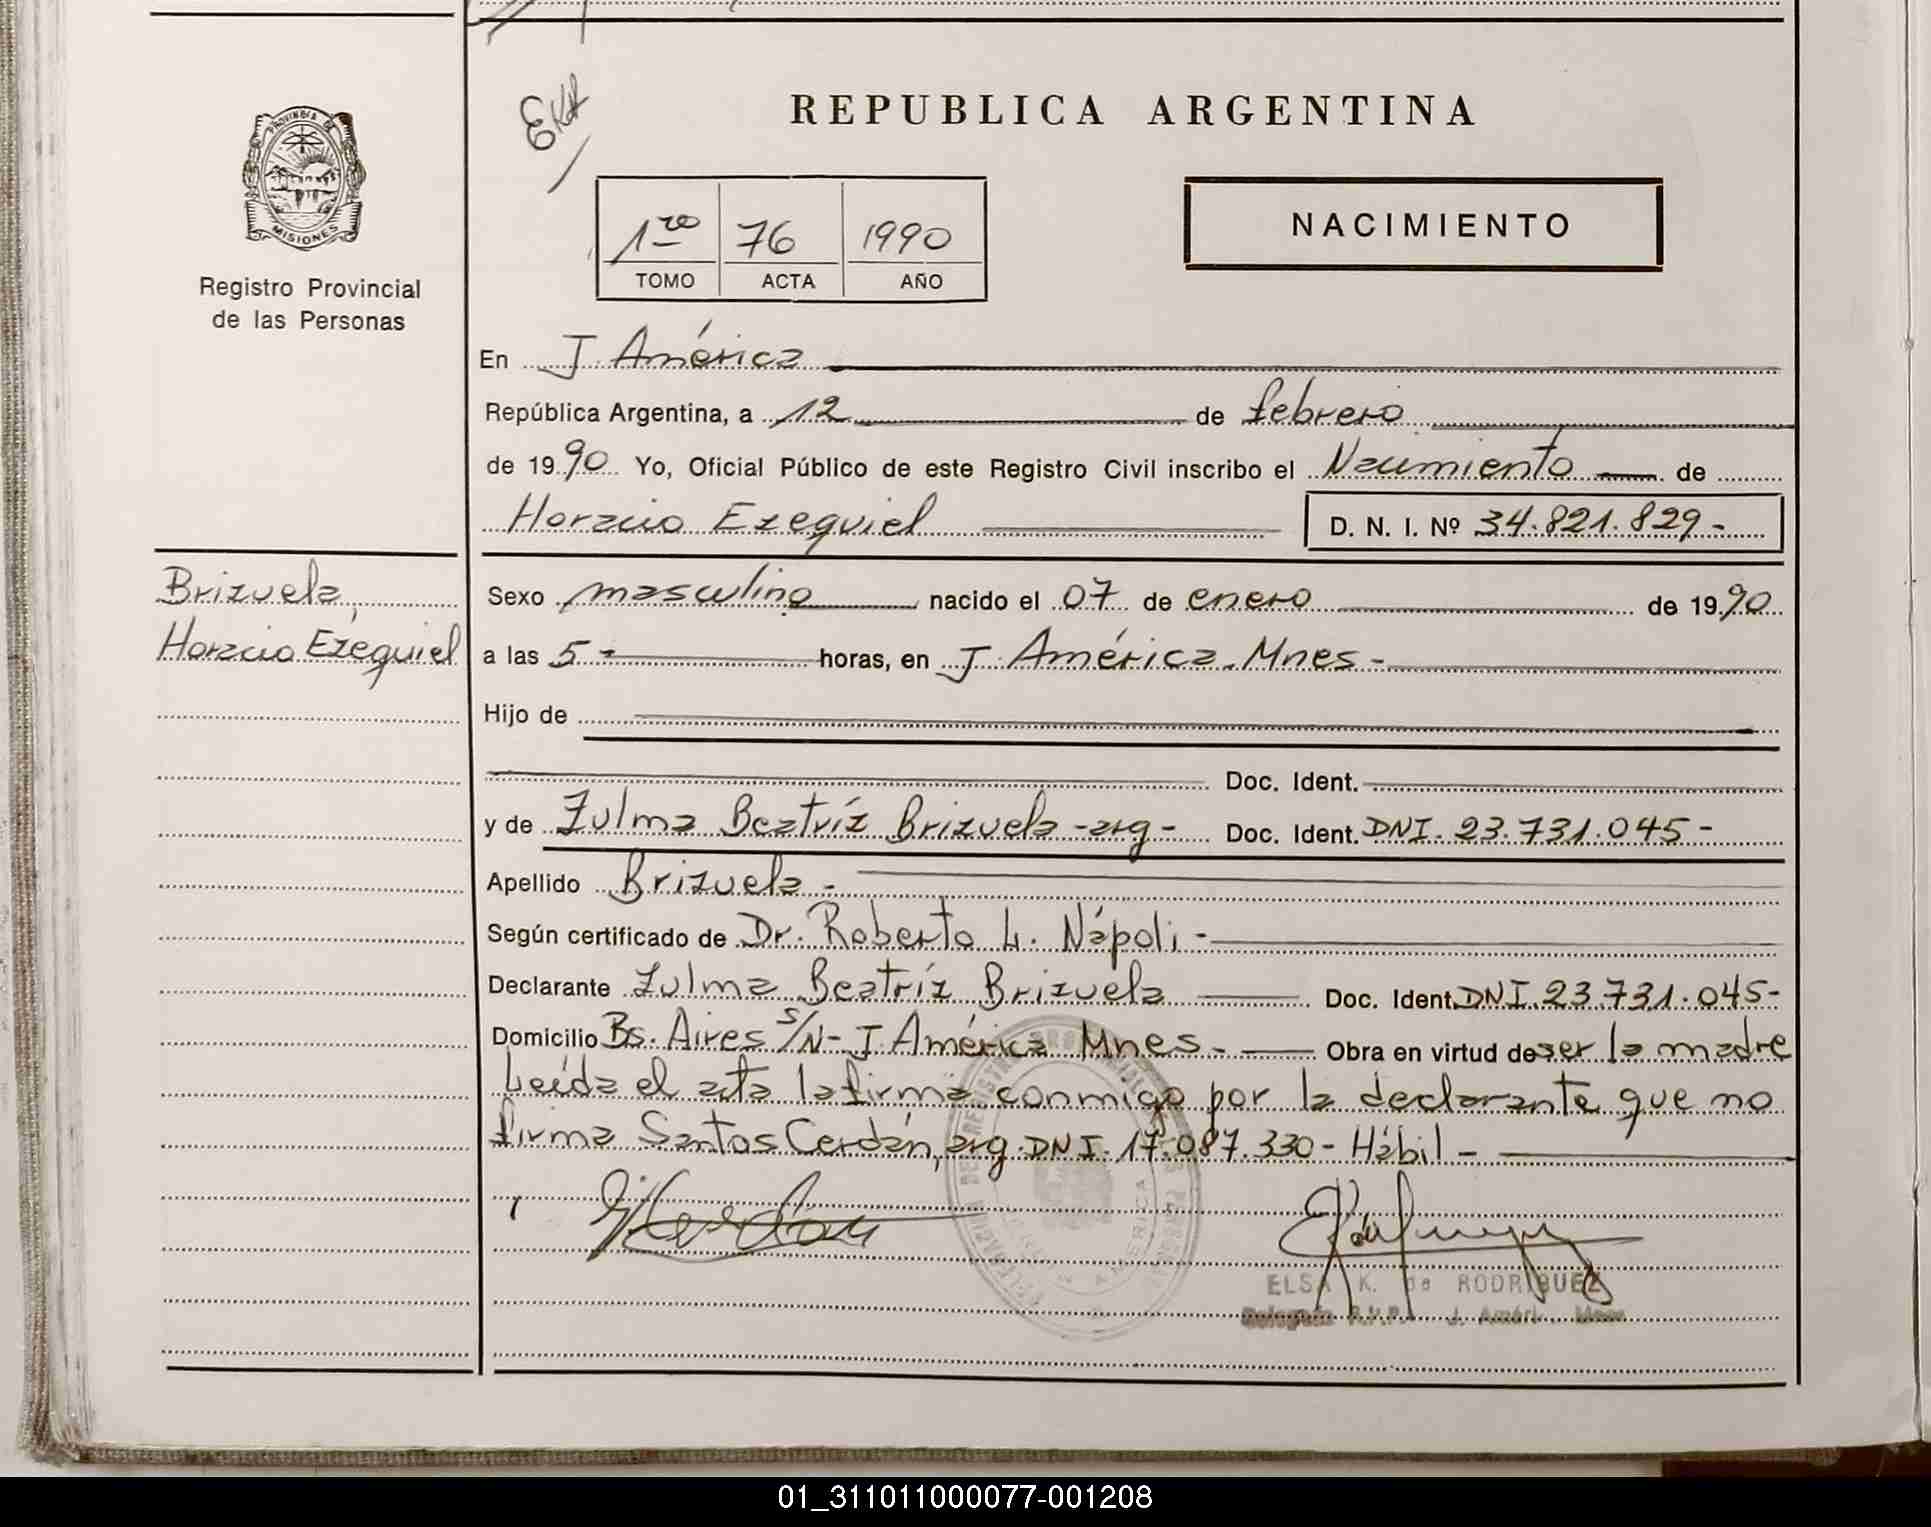 REPUBLICA ARGENTINA
PROVINCIA DE
MISIONES
Registro Provincial
de las Personas
1ro 76 1990
TOMO ACTA AÑO
NACIMIENTO
En J. América
República Argentina, a 12 de febrero
de 1990 Yo, Oficial Público de este Registro Civil inscribo el Nacimiento de
Horacio Ezequiel D. N. I. Nº 34.821.829-
Brizuela,
Horacio Ezequiel
Sexo masculino nacido el 07 de enero de 1990
a las 5- horas, en J. América. Mnes-
Hijo de
Doc. Ident.
y de Zulma Beatríz Brizuela -arg- Doc. Ident. DNI. 23.731.045-
Apellido Brizuela-
Según certificado de Dr. Roberto L. Nápoli-
Declarante Zulma Beatríz Brizuela Doc. Ident. DNI. 23.731.045-
Domicilio Bs. Aires s/N- J América Mnes- Obra en virtud de ser la madre
Leída el acta la firma conmigo por la declarante que no
firma Santos Cerdán, arg. DNI. 17.087.330- Hábil-
ELSA K. de RODRIGUEZ
Delegada R.P.P. J. Améri Mnes
01_311011000077-001208